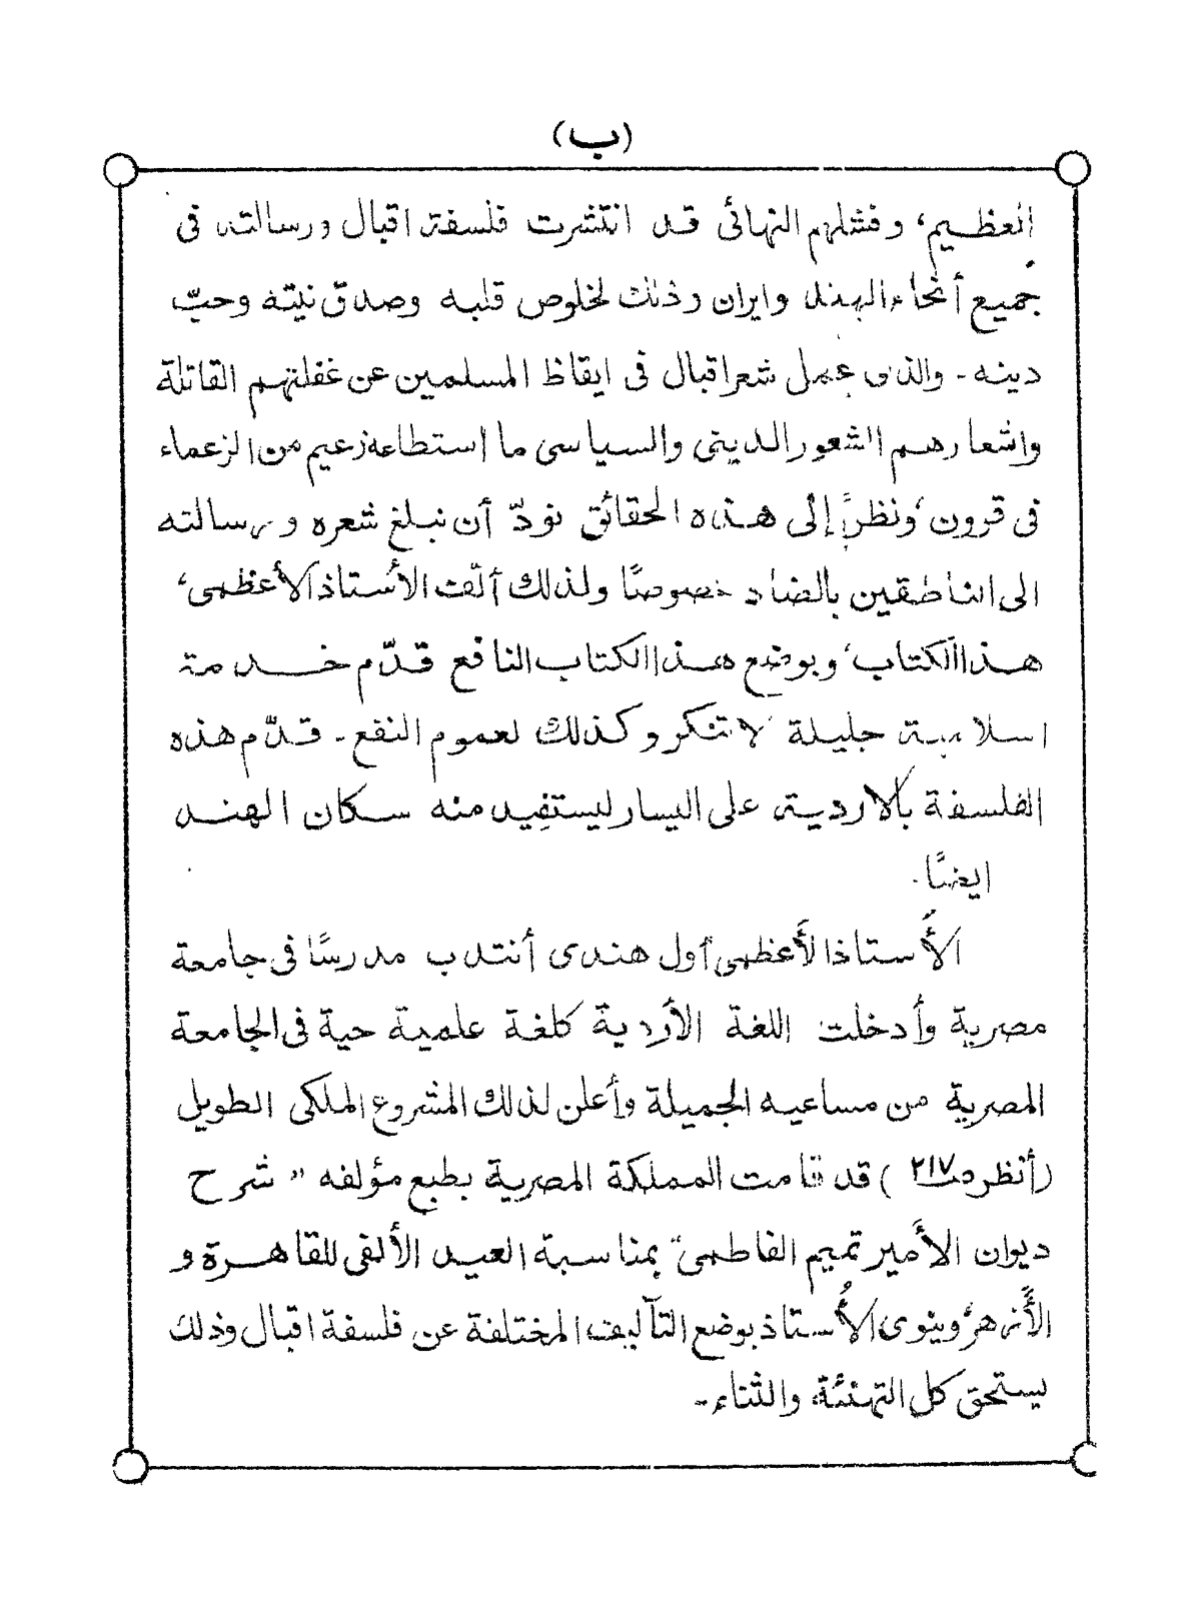 (ب)
العظيم، وفشلهم النهائى قد انتشرت فلسفة اقبال ورسالته فى
جميع أنحاء الهند وايران وذلك لخلوص قلبه وصدق نيته وحبّ
دينه - والذى عمل شعر اقبال فى ايقاظ المسلمين عن غفلتهم القاتلة
واشعارهم الشعور الدينى والسياسى ما استطاعه زعيم من الزعماء
فى قرون، ونظرًا إلى هذه الحقائق نودّ أن نبلغ شعره ورسالته
الى الناطقين بالضاد خصوصًا ولذلك ألّف الأستاذ الأعظمى،
هذا الكتاب، وبوضع هذا الكتاب النافع قدّم خدمة
اسلامية جليلة لا تنكر وكذلك لعموم النفع - قدّم هذه
الفلسفة بالاردية على اليسار ليستفيد منه سكان الهند
ايضًا.
الأُستاذ الأَعظمى أول هندى أنتدب مدرسًا فى جامعة
مصرية وأدخلت اللغة الأردية كلغة علمية حية فى الجامعة
المصرية من مساعيه الجميلة وأعلن لذلك المشروع الملكى الطويل
(أنظر ص ٢١٧) قد قامت المملكة المصرية بطبع مؤلفه "شرح
ديوان الأمير تميم الفاطمى" بمناسبة العيد الألفى للقاهرة و
الأَزهر، وينوى الأُستاذ بوضع التآليف المختلفة عن فلسفة اقبال وذلك
يستحق كل التهنئة، والثناء -